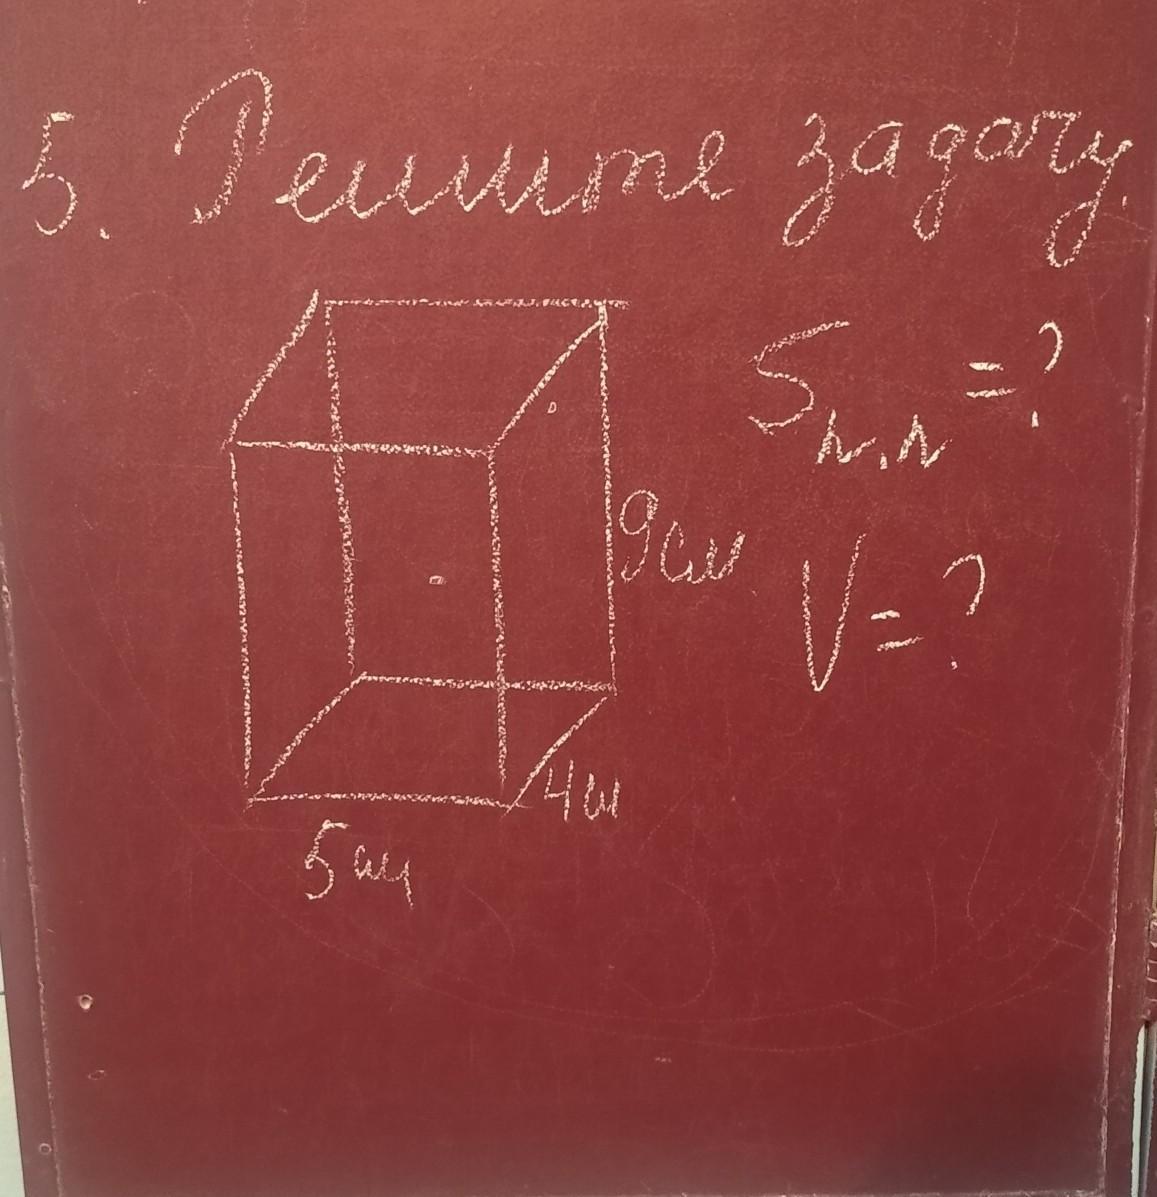 5. Решите задачу.
S п.п =?
9см
V = ?
4см
5см